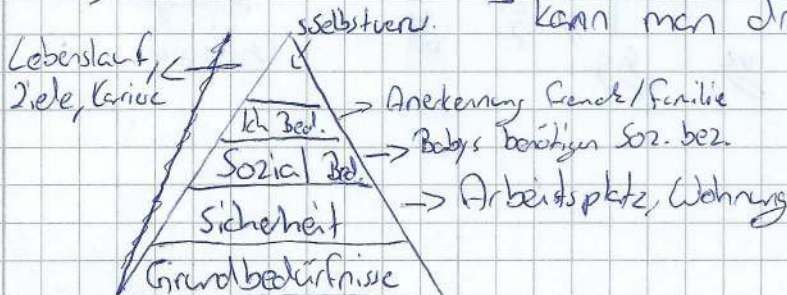 sselbstverw. kann man
Lebenslauf,
Ziele, Kariere
Ich Bed. -> Anerkennung Freunde/Familie
Sozial Bed. -> Babys benötigen Soz. bez.
Sicherheit -> Arbeitsplatz, Wohnung
Grundbedürfnisse